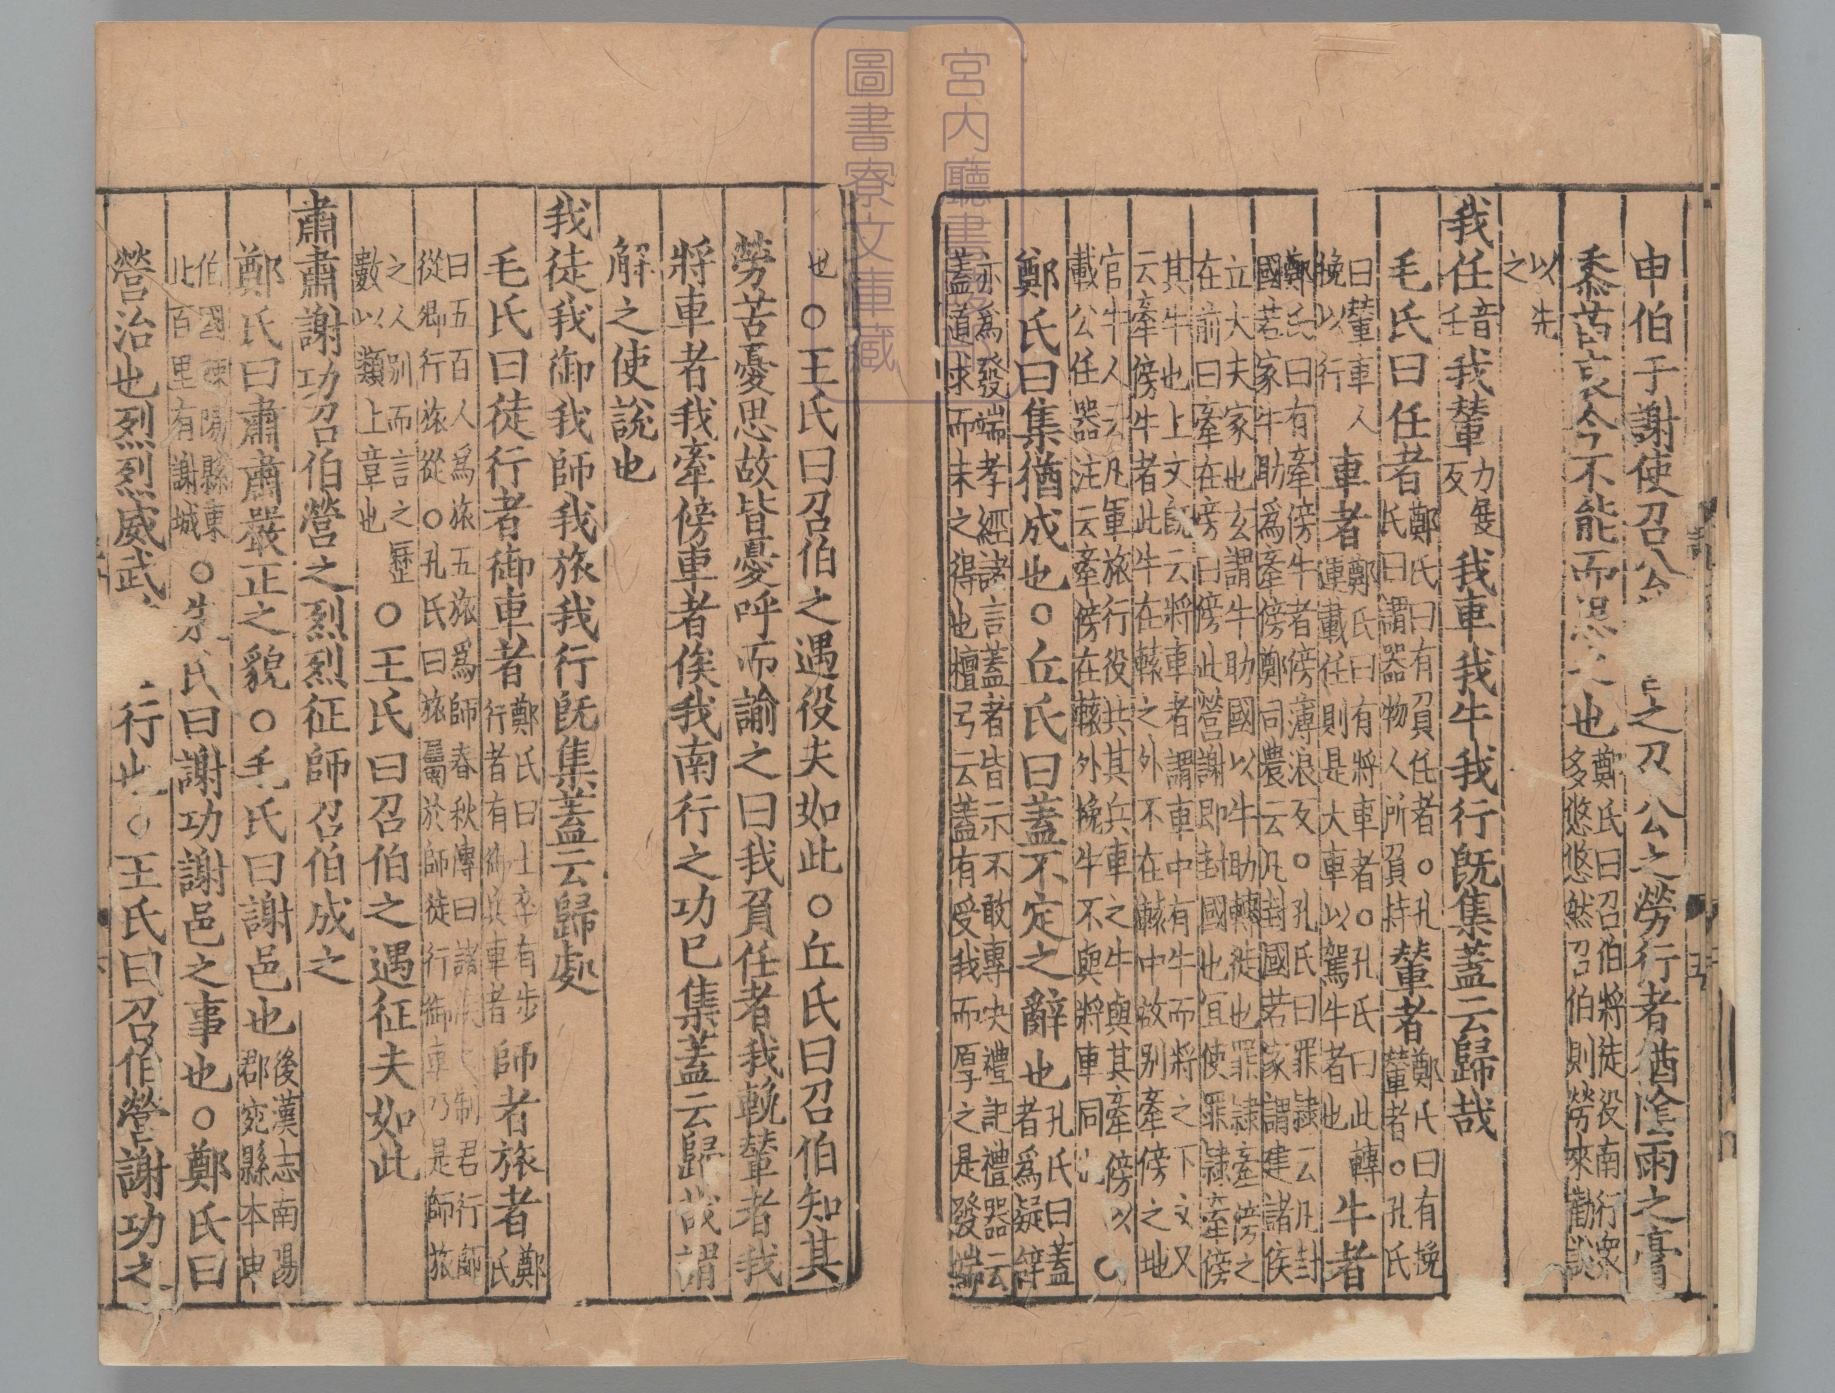 申伯于謝使召公之召公之勞行者猶陰雨之膏
黍苗哀今不能而恐之也鄭氏曰召伯將徒役南行衆多悠悠然召伯則勞來勸說
以先之
我任音壬我輦力展反我車我牛我行旣集蓋云歸哉
毛氏曰任者鄭氏曰有負任者○孔氏曰謂器物人所負持輦者鄭氏曰有挽輦者○孔氏
曰輦車人挽以行車者鄭氏曰有將車者○孔氏曰此轉運載任則是大車以駕牛者也牛者
鄭氏曰有牽傍牛者傍薄浪反○孔氏曰罪隸云凡封國若家牛助爲牽傍鄭司農云凡封國若家謂建諸侯
立大夫家也玄謂牛助國以牛助轉徙也罪隸牽傍之在前曰牽在旁曰傍此營謝卽封國也宜使罪隸牽傍
其牛也上文旣云將車者謂車中有牛而將之下文又云牽傍牛者此牛在轅之外不在轅中故別牽傍之地
官牛人云凡軍旅行役共其兵車之牛與其牽傍以載公任器注云牽傍在轅外挽牛不與將車同
鄭氏曰集猶成也○丘氏曰蓋不定之辭也孔氏曰蓋者爲疑辭
亦爲發端孝經諸言蓋者皆示不敢專決禮記禮器云蓋道求而未之得也檀弓云蓋有受我而厚之是發端
也○王氏曰召伯之遇役夫如此○丘氏曰召伯知其
勞苦憂思故皆憂呼而諭之曰我負任者我輓輦者我
將車者我牽傍車者俟我南行之功已集蓋云歸哉謂
解之使說也
我徒我御我師我旅我行旣集蓋云歸處
毛氏曰徒行者御車者鄭氏曰士卒有步行者有御兵車者師者旅者鄭氏
曰五百人爲旅五旅爲師春秋傳曰諸侯之制君行師從卿行旅從○孔氏曰旅屬於師徒行御車乃是師旅
之人別而言之歷數以類上章也○王氏曰召伯之遇征夫如此
肅肅謝功召伯營之烈烈征師召伯成之
鄭氏曰肅肅嚴正之貌○毛氏曰謝邑也後漢志南陽郡宛縣本申
伯國棘陽縣東北百里有謝城○朱氏曰謝功謝邑之事也○鄭氏曰
營治也烈烈威武行也○王氏曰召伯營謝功之
宮内廳書
圖書寮文庫藏